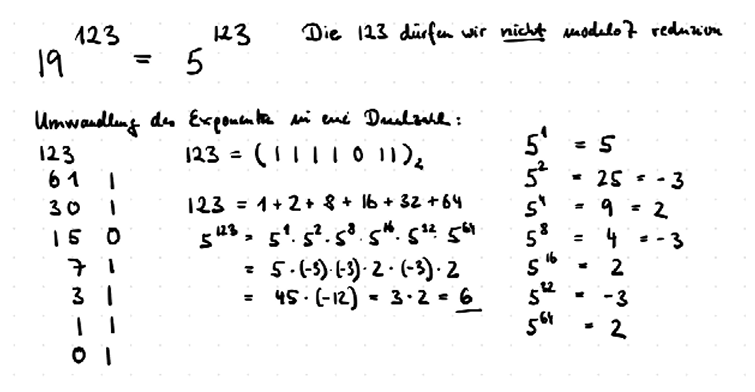 19^123 = 5^123 Die 123 dürfen wir nicht modulo 7 reduzieren
Umwandlung des Exponenten in eine Dualzahl:
123
61 1
30 1
15 0
7 1
3 1
1 1
0 1
123 = (1 1 1 1 0 1 1)₂
123 = 1 + 2 + 8 + 16 + 32 + 64
5^123 = 5^1 · 5^2 · 5^8 · 5^16 · 5^32 · 5^64
= 5 · (-3) · (-3) · 2 · (-3) · 2
= 45 · (-12) = 3 · 2 = 6
5^1 = 5
5^2 = 25 = -3
5^4 = 9 = 2
5^8 = 4 = -3
5^16 = 2
5^32 = -3
5^64 = 2